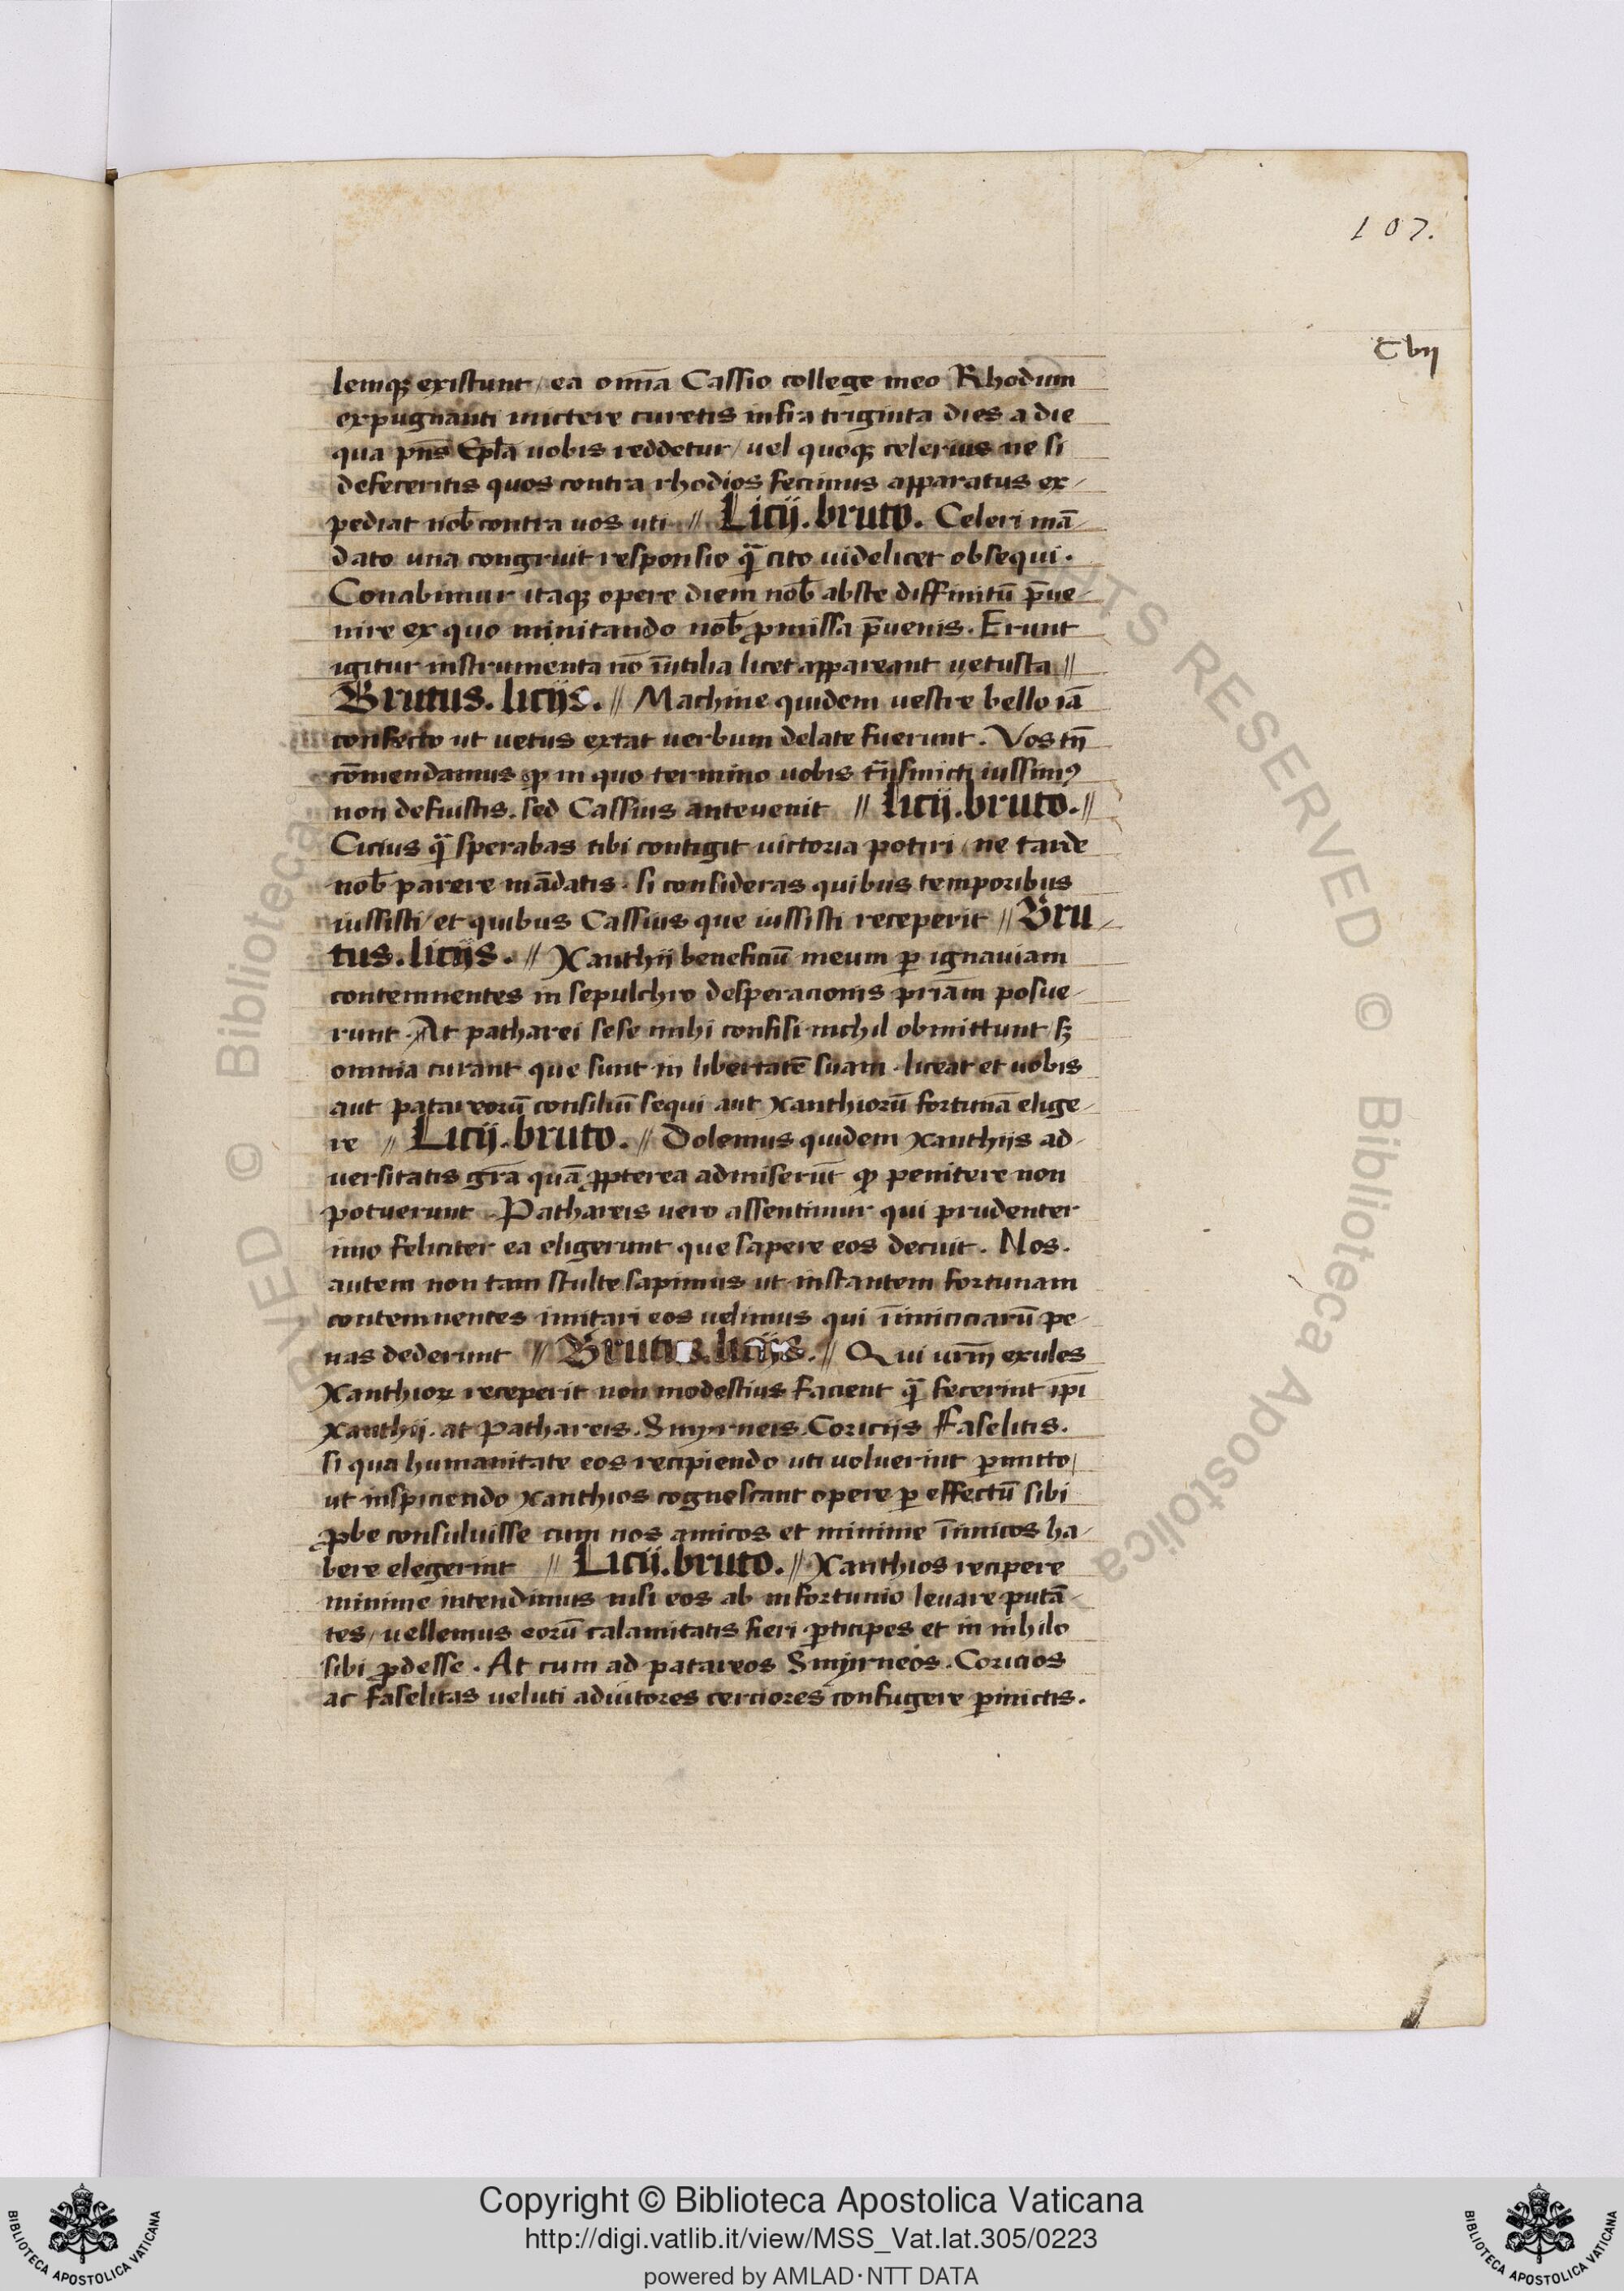 107.
Cvij
lemqȝ existunt / ea om̄ia Cassio college meo Rhodum
expugnanti mictere curetis infra triginta dies a die
qua pn̄s Epl̄a uobis reddetur / uel quoqȝ celerius ne si
defeceritis quos contra rhodios fecimus apparatus ex-
pediat nob̄ contra uos uti // Licij. bruto. Celeri mā-
dato una congruit responsio q̄ cito uidelicet obsequi.
Conabimur itaqȝ opere diem nob̄ abste diffinitū p̄ue-
nire ex quo minitando nob̄ ꝓmissa p̄uenis. Erunt
igitur instrumenta nō īutilia licet appareant uetusta //
Brutus. licijs. // Machine quidem uestre bello iā
confecto ut uetus extat uerbum delate fuerunt. Vos tn̄
cōmendamus in quo termino uobis iussimꝰ
non defuistis. sed Cassius antevenit // licij. bruto. //
Cicius q̄ sperabas tibi contigit uictoria potiri / ne tarde
nob̄ parere mādatis. si consideras quibus temporibus
iussisti / et quibus Cassius que iussisti receperit // Bru-
tus. licijs. // Xanthij beneficiū meum ꝑ ignauiam
contemnentes in sepulchro desperacionis pr̄iam posue-
runt. At patharei sese mihi confisi nichil obmittunt sȝ
omnia curant que sunt in libertatē suam. liceat et uobis
aut patareorū consiliū sequi aut xanthiorū fortunā elige-
re // Licij. bruto. // Dolemus quidem xanthijs ad-
uersitatis gr̄a quā ꝓpterea admiserūt penitere non
potuerunt. Pathareis uero assentimur qui prudenter
imo feliciter ea eligerunt que sapere eos decuit. Nos.
autem non tam stulte sapimus ut instantem fortunam
contemnentes imitari eos uelimus qui īimiciciarū pe-
nas dederunt // Brutus. licijs. // Qui ur̄m exules
Xanthioꝝ receperit non modestius facient q̄ fecerint ip̄i
Xanthij. at Pathareis. Smyrneis. Coricijs Faselitis.
si qua humanitate eos recipiendo uti uoluerint ꝑmitto /
ut inspiciendo xanthios cognescant opere ꝑ effectū sibi
ꝓbe consuluisse cum nos amicos et minime īimicos ha-
bere elegerint // Licij. bruto. // Xanthios recipere
minime intendimus nisi eos ab infortunio levare putā-
tes / uellemus eorū calamitatis fieri ꝑticipes et in nihilo
sibi ꝓdesse. At cum ad patareos Smyrneos. Coricios
ac faselitas ueluti adiutores cerciores confugere ꝑmictis.
© Biblioteca Apostolica
Copyright © Biblioteca Apostolica Vaticana
http://digi.vatlib.it/view/MSS_Vat.lat.305/0223
powered by AMLAD·NTT DATA
BIBLIOTECA APOSTOLICA VATICANA
BIBLIOTECA APOSTOLICA VATICANA